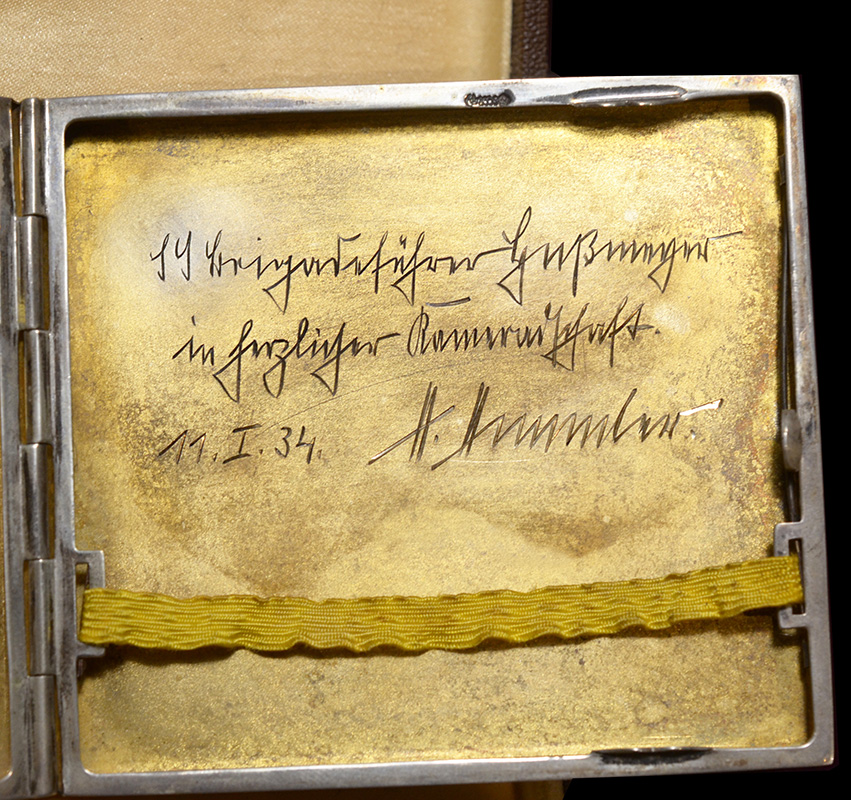 SS Brigadeführer Heißmeyer
in herzlicher Kameradschaft.
11. I. 34. H. Himmler.